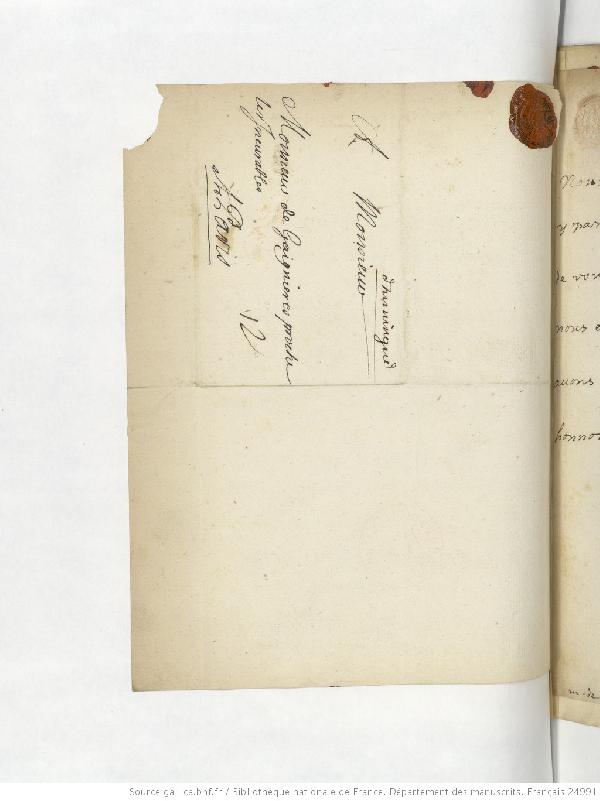 d'huningue
A Monsieur
Monsieur de Gaignieres, proche
les Incurables
A Paris
12
Nous
y par
de vou
nous e
auons
honno
Source gallica.bnf.fr / Bibliothèque nationale de France. Département des manuscrits. Français 24991